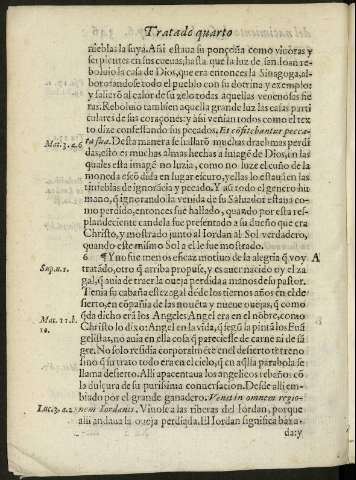 Tratado quarto
nieblas la suya. Assi estaua su ponçoña como viuoras y
serpientes en sus cueuas, hasta que la luz de san Ioan re-
boluio la casa de Dios, que era entonces la Sinagoga, al-
borotandose todo el pueblo con su dotrina y exemplo:
y salierō al calor de su zelo todas aquellas venenosas fie
ras. Reboluio tambien aquella grande luz las casas parti
culares de sus coraçones: y assi venian todos como el tex
to dize confessando sus pecados. Et cōfitebantur pecca-
Mat. 3. a. 6
ta sua. Desta manera se hallarō muchas dracmas perdi
das, esto es muchas almas hechas a imagē de Dios, en las
quales esta imagē no luzia, como no luze el cuño de la
moneda escōdida en lugar escuro, y ellas lo estauā en las
tinieblas de ignorācia y pecado. Y assi todo el genero hu-
mano, q̄ ignorando la venida de su Saluador estaua co-
mo perdido, entonces fue hallado, quādo por esta res-
plandeciente candela fue presentado a su dueño que era
Christo, y mostrado junto al Iordan al Sol verdadero,
quando este mismo Sol a el le fue mostrado.
6 ¶ Y no fue menos eficaz motiuo de la alegria q̄ voy A
Sup. n. 1.
tratādo, otro q̄ arriba propuse, y es auer nacido oy el za
gal, q̄ auia de traer la oueja perdida a manos de su pastor.
Tenia su cabaña este zagal dēsde los tiernos años en el de
sierto, en cōpañia de las nouēta y nueue ouejas, q̄ como
Mat. 11. b.
10.
q̄da dicho erā los Angeles. Angel era en el nōbre, como
Christo lo dixo: Angel en la vida, q̄ segū la pintā los Euā
gelistas, no auia en ella cosa q̄ pareciesse de carne ni de sā
gre. No solo residia corporalmēte en el desierto terreno
sino q̄ su trato todo era en el cielo, q̄ en aq̄lla parabola se
llama desierto. Alli apacentaua los angelicos rebaños cō
la dulçura de su purissima conuersacion. Desde alli em-
biado por el grande ganadero. Venit in omnem regio-
Luc. 3. a. 2
nem Iordanis. Vinole a las riberas del Iordan, porque
alli andaua la oueja perdida. El Iordan significa baxa-
da: y